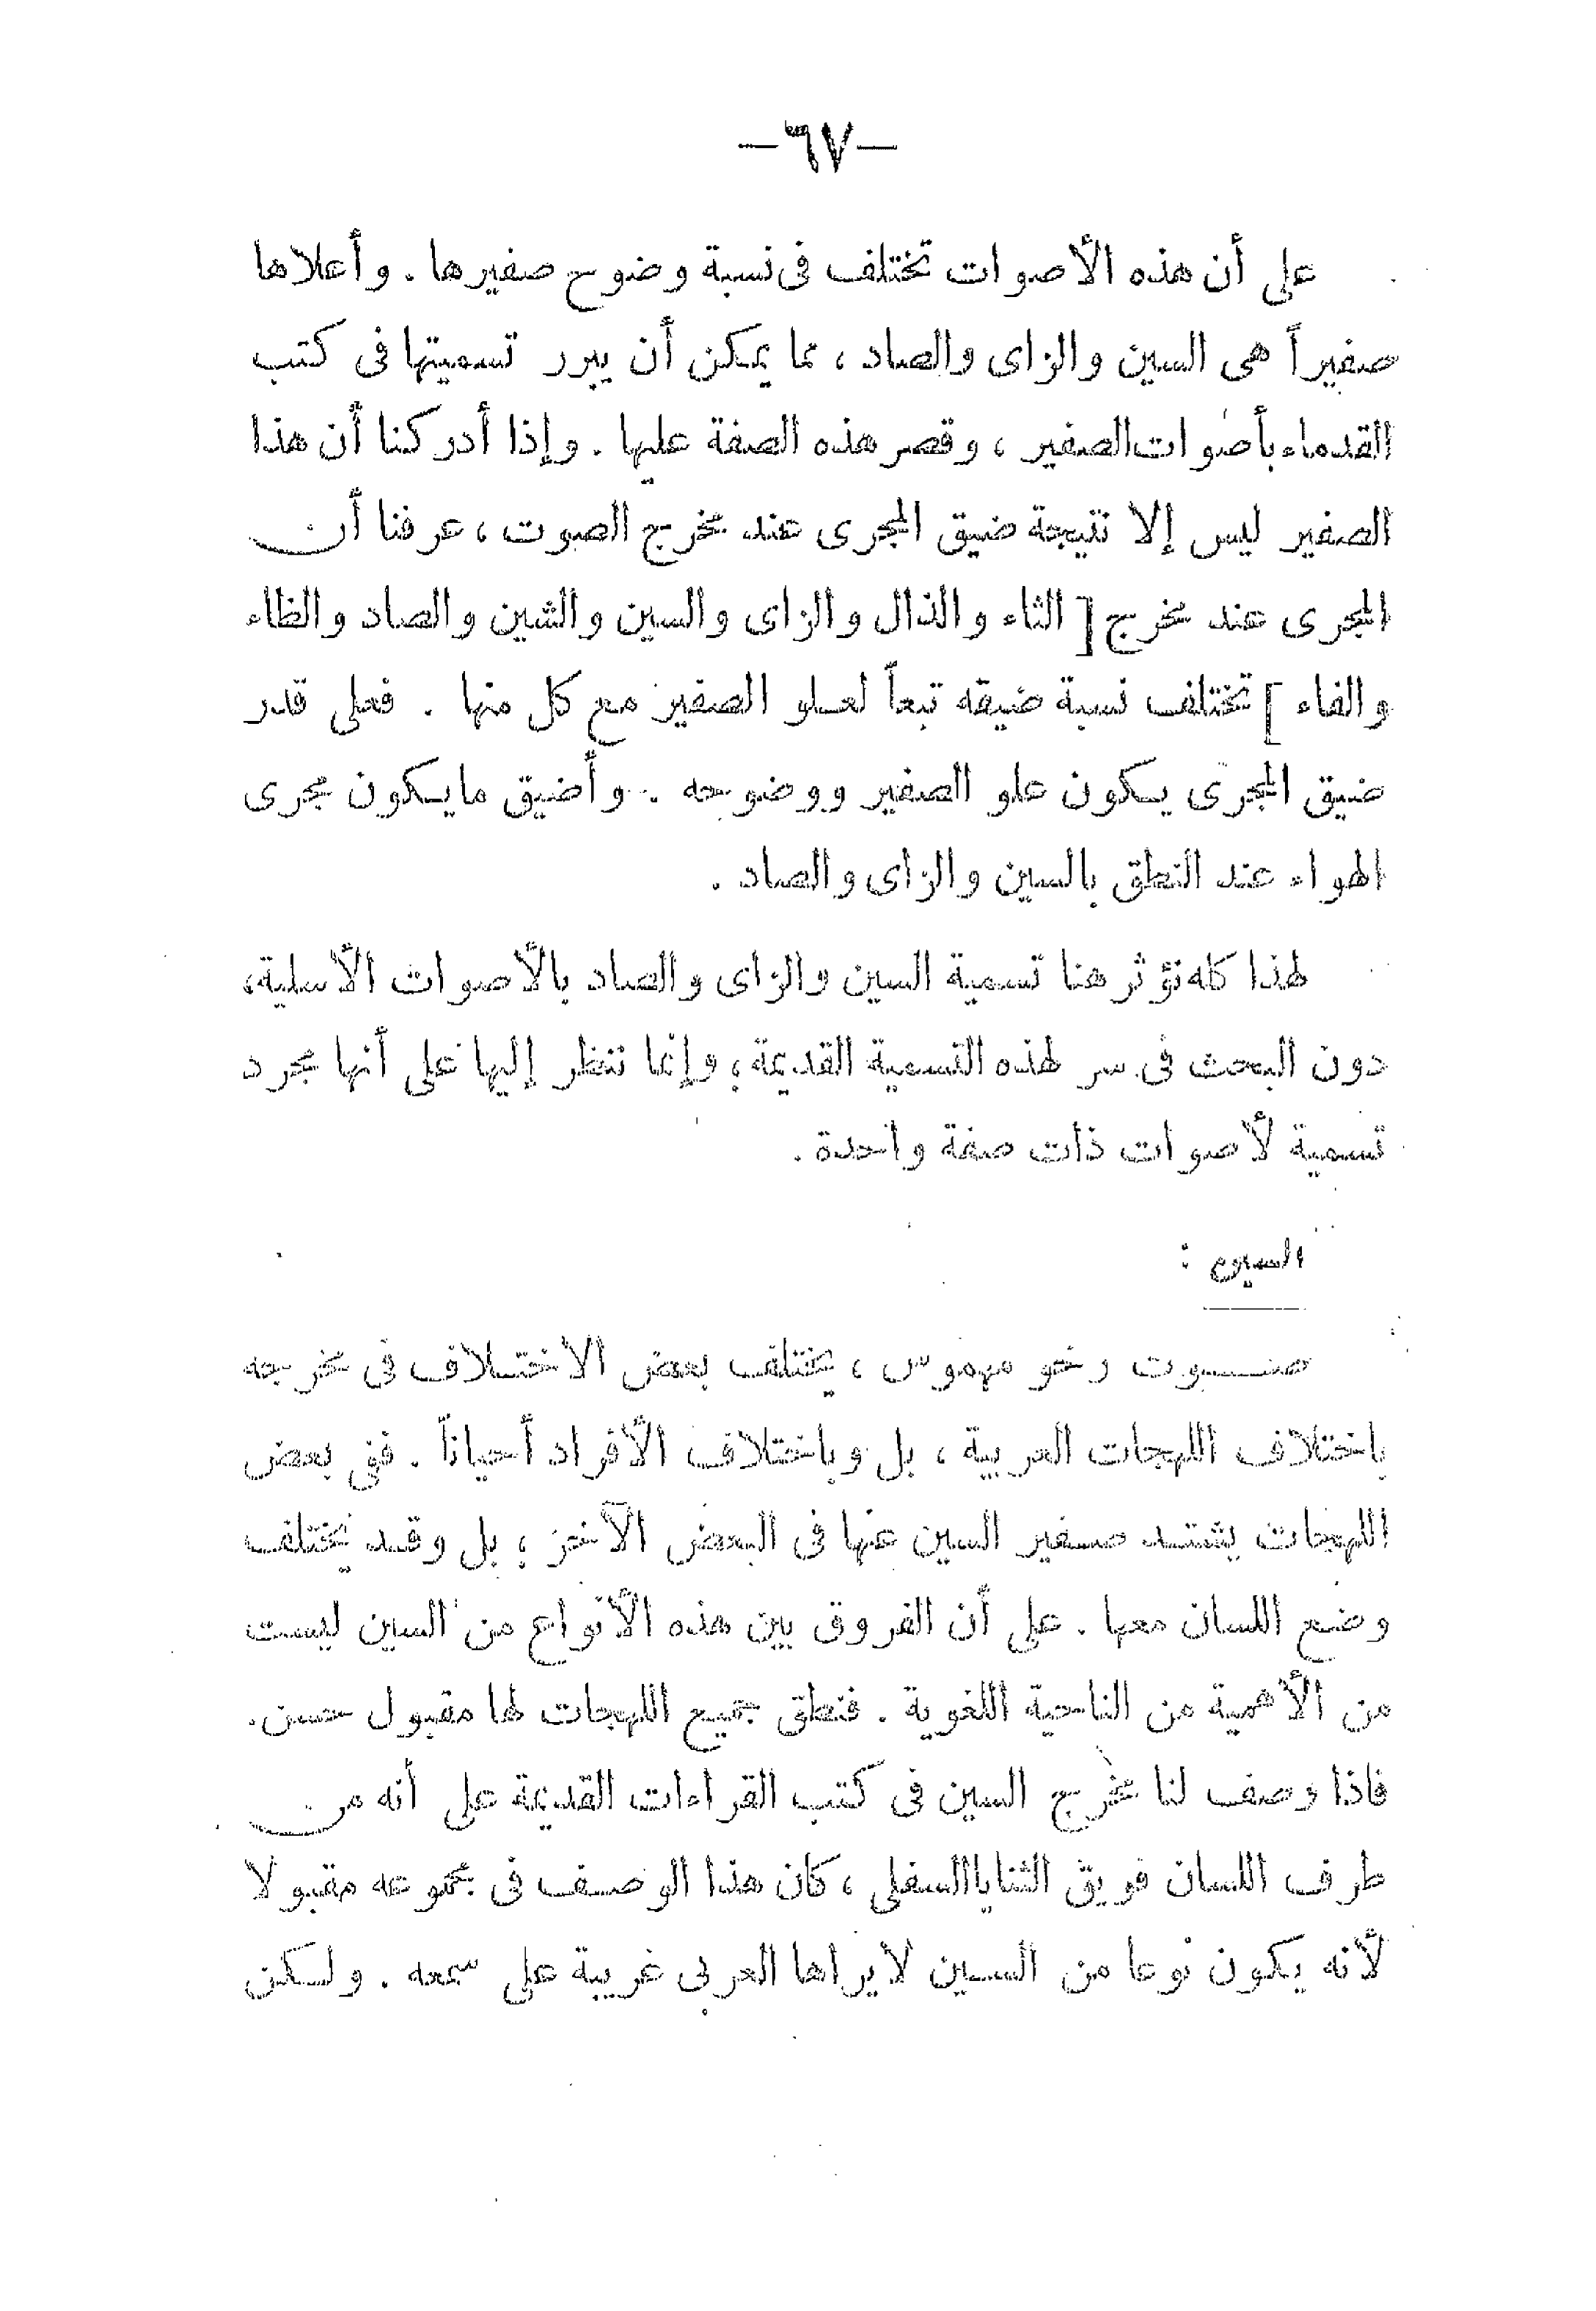 —٦٧—
على أن هذه الأصوات تختلف فى نسبة وضوح صفيرها . وأعلاها
صفيراً هى السين والزاى والصاد ، مما يمكن أن يبرر تسميتها فى كتب
القدماء بأصوات الصفير ، وقصر هذه الصفة عليها . وإذا أدركنا أن هذا
الصفير ليس إلا نتيجة ضيق المجرى عند مخرج الصوت ، عرفنا أن
المجرى عند مخرج [ الثاء والذال والزاى والسين والشين والصاد والظاء
والفاء ] تختلف نسبة ضيقه تبعاً لعلو الصفير مع كل منها . فعلى قدر
ضيق المجرى يكون علو الصفير ووضوحه . وأضيق ما يكون مجرى
الهواء عند النطق بالسين والزاى والصاد .
لهذا كله نؤثر هنا تسمية السين والزاى والصاد بالأصوات الأسلية،
دون البحث فى سر لهذه التسمية القديمة ؛ وإنما ننظر إليها على أنها مجرد
تسمية لأصوات ذات صفة واحدة .
السين :
صوت رخو مهموس ، يختلف بعض الاختلاف فى مخرجه
باختلاف اللهجات العربية ، بل وباختلاف الأفراد أحياناً . ففى بعض
اللهجات يشتد صفير السين عنها فى البعض الآخر ؛ بل وقد يختلف
وضع اللسان معها . على أن الفروق بين هذه الأنواع من السين ليست
من الأهمية من الناحية اللغوية . فنطق جميع اللهجات لها مقبول حسن.
فاذا وصف لنا مخرج السين فى كتب القراءات القديمة على أنه من
طرف اللسان فويق الثنايا السفلى ، كان هذا الوصف فى مجموعه مقبولا
لأنه يكون نوعا من السين لا يراها العربى غريبة على سمعه . ولكن